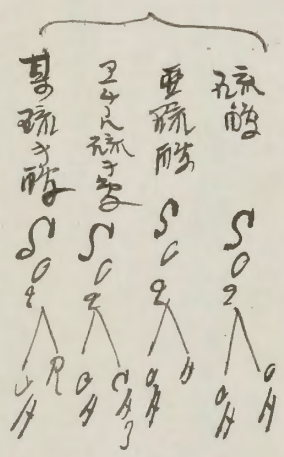 硫酸 SO2 OH OH
亜硫酸 SO2 OH H
メチル硫子酸 SO2 OH CH3
基硫子酸 SO2 OH R